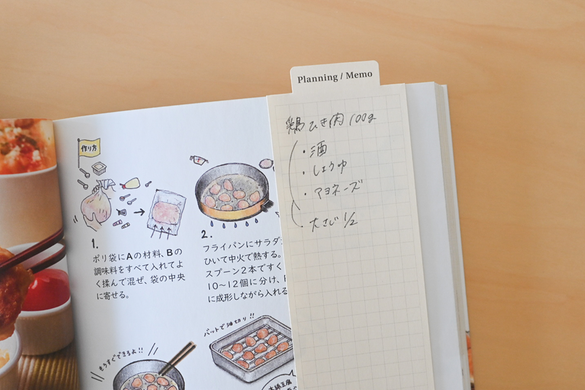 Planning / Memo
鶏ひき肉 100g
・酒
・しょうゆ
・マヨネーズ
・大さじ 1/2
作り方
1.
ポリ袋にAの材料、Bの
調味料をすべて入れてよ
く揉んで混ぜ、袋の中央
に寄せる。
2.
フライパンにサラダ
ひいて中火で熱する。
スプーン2本ですく
10〜12個に分け、
に成形しながら入れる
もうすぐできるよ!!
バットで油切り!!